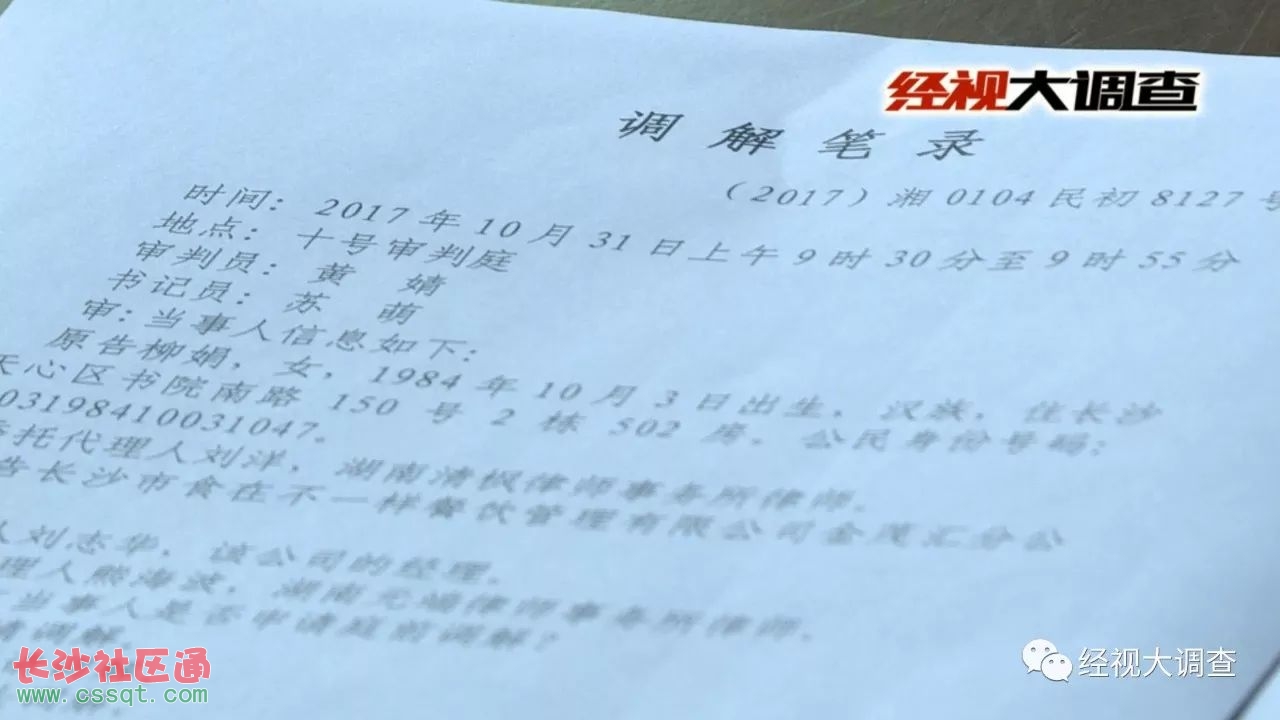 经视大调查
调解笔录
（2017）湘0104民初8127号
时间：2017年10月31日上午9时30分至9时55分
地点：十号审判庭
审判员：黄婧
书记员：苏萌
审：当事人信息如下：
原告柳娟，女，1984年10月3日出生，汉族，住长沙
天心区书院南路150号2栋502房，公民身份号码：
03198410031047。
委托代理人刘洋，湖南清枫律师事务所律师。
告长沙市食在不一样餐饮管理有限公司金茂汇分公
人刘志华，该公司的经理。
理人熊海波，湖南元端律师事务所律师。
当事人是否申请庭前调解？
请调解。
长沙社区通
www.cssqt.com
经视大调查